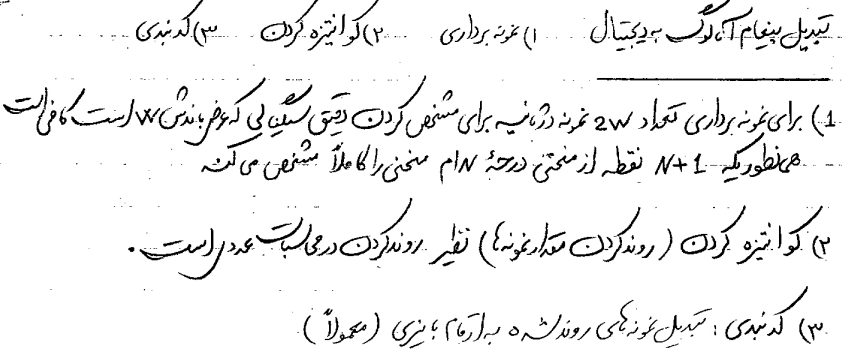 تبدیل پیغام آنالوگ به دیجیتال ۱) نمونه برداری ۲) کوانتیزه کردن ۳) کدبندی
1) برای نمونه برداری تعداد 2W نمونه در ثانیه برای مشخص کردن دقیق سیگنالی که عرض باندش W است کافی است
همانطوریکه N+1 نقطه از منحنی درجهٔ N ام منحنی را کاملاً مشخص می کند
۲) کوانتیزه کردن (روند کردن مقدار نمونه ها) نظیر روند کردن در محاسبات عددی است.
۳) کدبندی : تبدیل نمونه های روند شده به ارقام باینری (معمولاً)